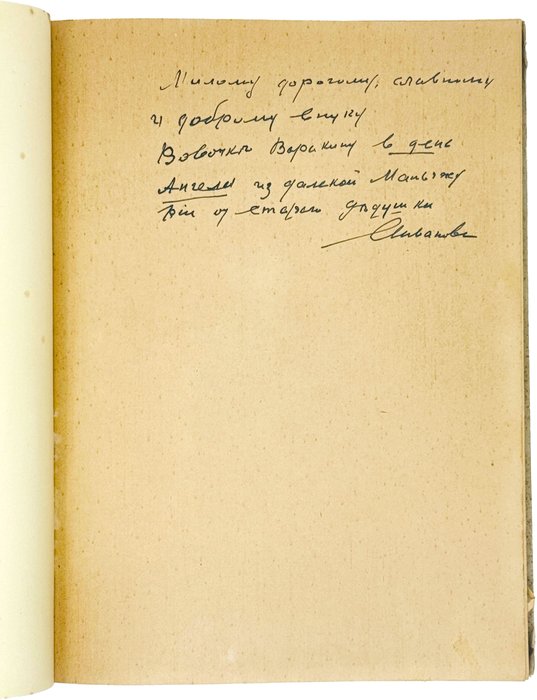 Милому дорогому, славному
и доброму внуку
Вовочке Воракину в день
Ангела из далекой Маньчжу
рiи от стараго дѣдушки